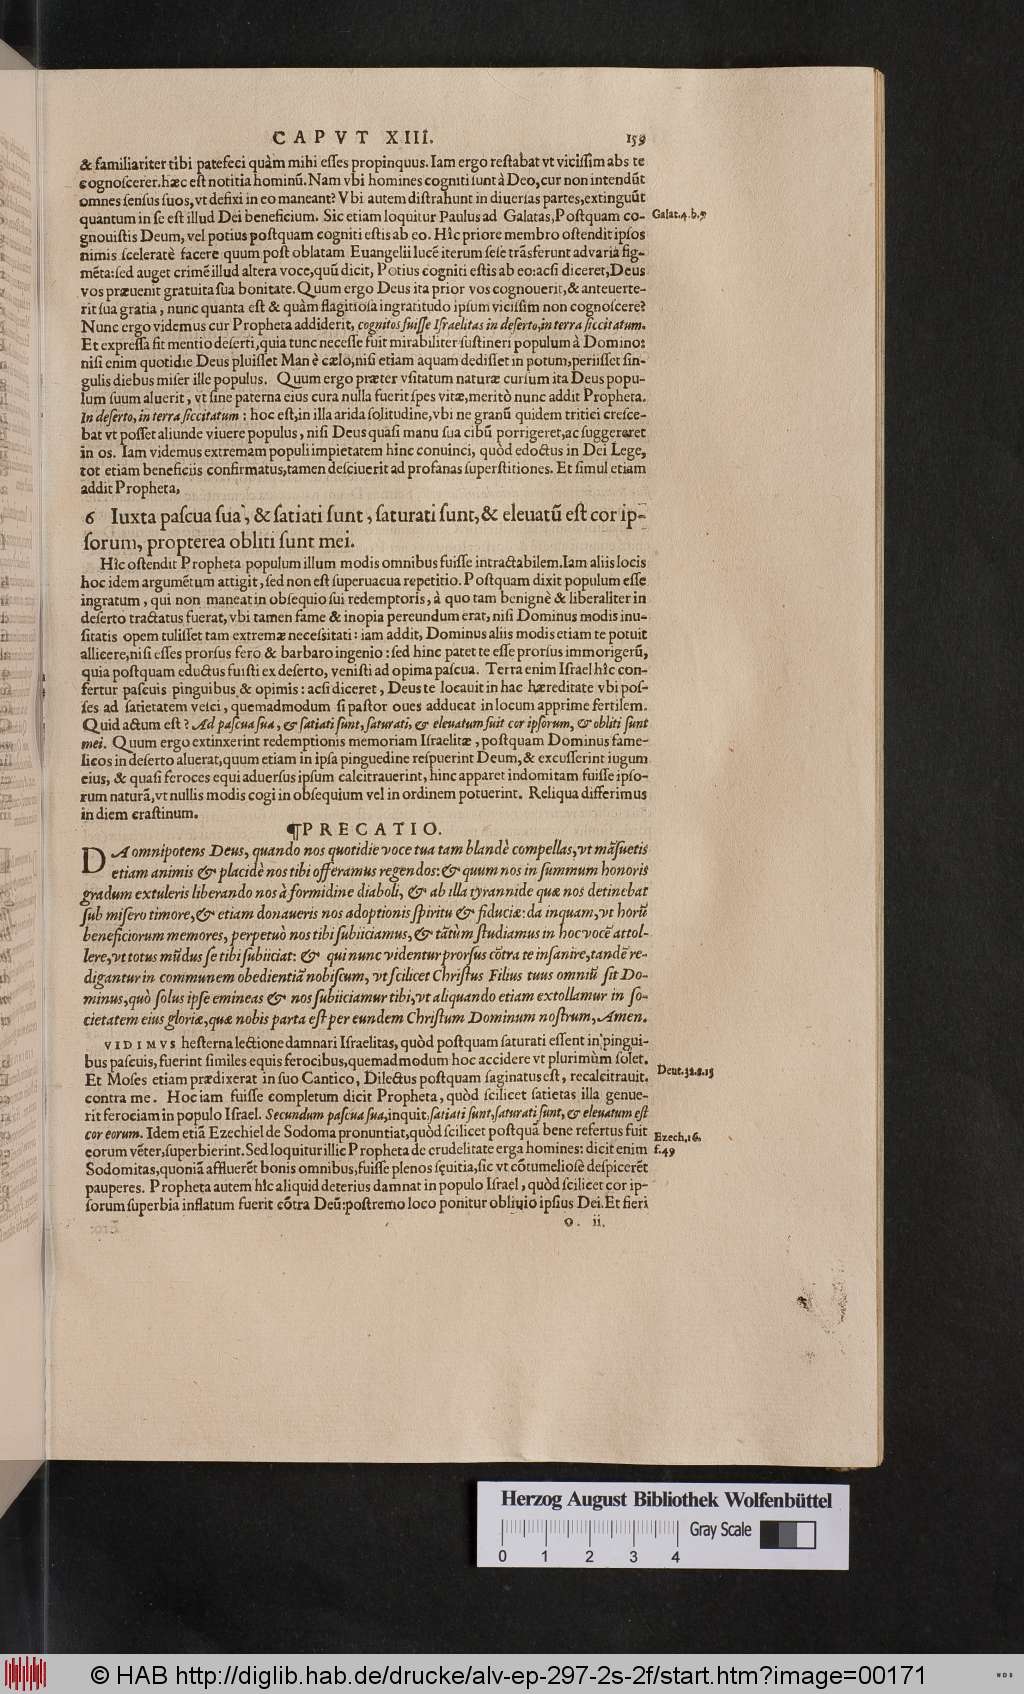 CAPVT XIII. 159
& familiariter tibi patefeci quàm mihi eſſes propinquus. Iam ergo reſtabat vt viciſſim abs te
cognoſcerer. hæc eſt notitia hominũ. Nam vbi homines cogniti ſunt à Deo, cur non intendũt
omnes ſenſus ſuos, vt defixi in eo maneant? Vbi autem diſtrahunt in diuerſas partes, extinguũt
quantum in ſe eſt illud Dei beneficium. Sic etiam loquitur Paulus ad Galatas, Poſtquam co-
Galat. 4. b. 9
gnouiſtis Deum, vel potius poſtquam cogniti eſtis ab eo. Hîc priore membro oſtendit ipſos
nimis ſceleratè facere quum poſt oblatam Euangelii lucẽ iterum ſeſe trãsferunt ad varia fig-
mẽta: ſed auget crimẽ illud altera voce, quũ dicit, Potius cogniti eſtis ab eo: acſi diceret, Deus
vos præuenit gratuita ſua bonitate. Quum ergo Deus ita prior vos cognouerit, & anteuerte-
rit ſua gratia, nunc quanta eſt & quàm flagitioſa ingratitudo ipſum viciſſim non cognoſcere?
Nunc ergo videmus cur Propheta addiderit, cognitos fuiſſe Iſraelitas in deſerto, in terra ſiccitatum.
Et expreſſa fit mentio deſerti, quia tunc neceſſe fuit mirabiliter ſuſtineri populum à Domino:
niſi enim quotidie Deus pluiſſet Man è cælo, niſi etiam aquam dediſſet in potum, periiſſet ſin-
gulis diebus miſer ille populus. Quum ergo præter vſitatum naturæ curſum ita Deus popu-
lum ſuum aluerit, vt ſine paterna eius cura nulla fuerit ſpes vitæ, meritò nunc addit Propheta.
In deſerto, in terra ſiccitatum: hoc eſt, in illa arida ſolitudine, vbi ne granũ quidem tritici creſce-
bat vt poſſet aliunde viuere populus, niſi Deus quaſi manu ſua cibũ porrigeret, ac ſuggereret
in os. Iam videmus extremam populi impietatem hinc conuinci, quòd edoctus in Dei Lege,
tot etiam beneficiis confirmatus, tamen deſciuerit ad profanas ſuperſtitiones. Et ſimul etiam
addit Propheta,
6 Iuxta paſcua ſua, & ſatiati ſunt, ſaturati ſunt, & eleuatũ eſt cor ip-
ſorum, propterea obliti ſunt mei.
Hîc oſtendit Propheta populum illum modis omnibus fuiſſe intractabilem. Iam aliis locis
hoc idem argumẽtum attigit, ſed non eſt ſuperuacua repetitio. Poſtquam dixit populum eſſe
ingratum, qui non maneat in obſequio ſui redemptoris, à quo tam benignè & liberaliter in
deſerto tractatus fuerat, vbi tamen fame & inopia pereundum erat, niſi Dominus modis inu-
ſitatis opem tuliſſet tam extremæ neceſsitati: iam addit, Dominus aliis modis etiam te potuit
allicere, niſi eſſes prorſus fero & barbaro ingenio: ſed hinc patet te eſſe prorſus immorigerũ,
quia poſtquam eductus fuiſti ex deſerto, veniſti ad opima paſcua. Terra enim Iſrael hîc con-
fertur paſcuis pinguibus & opimis: acſi diceret, Deus te locauit in hac hæreditate vbi poſ-
ſes ad ſatietatem veſci, quemadmodum ſi paſtor oues adducat in locum apprime fertilem.
Quid actum eſt? Ad paſcua ſua, & ſatiati ſunt, ſaturati, & eleuatum fuit cor ipſorum, & obliti ſunt
mei. Quum ergo extinxerint redemptionis memoriam Iſraelitæ, poſtquam Dominus fame-
licos in deſerto aluerat, quum etiam in ipſa pinguedine reſpuerint Deum, & excuſſerint iugum
eius, & quaſi feroces equi aduerſus ipſum calcitrauerint, hinc apparet indomitam fuiſſe ipſo-
rum naturã, vt nullis modis cogi in obſequium vel in ordinem potuerint. Reliqua differimus
in diem craſtinum.
¶PRECATIO.
DA omnipotens Deus, quando nos quotidie voce tua tam blandè compellas, vt mãſuetis
etiam animis & placidè nos tibi offeramus regendos: & quum nos in ſummum honoris
gradum extuleris liberando nos à formidine diaboli, & ab illa tyrannide quæ nos detinebat
ſub miſero timore, & etiam donaueris nos adoptionis ſpiritu & fiduciæ: da inquam, vt horũ
beneficiorum memores, perpetuò nos tibi ſubiiciamus, & tãtùm ſtudiamus in hoc vocẽ attol-
lere, vt totus mũdus ſe tibi ſubiiciat: & qui nunc videntur prorſus cõtra te inſanire, tandẽ re-
digantur in communem obedientiã nobiſcum, vt ſcilicet Chriſtus Filius tuus omniũ ſit Do-
minus, quò ſolus ipſe emineas & nos ſubiiciamur tibi, vt aliquando etiam extollamur in ſo-
cietatem eius gloriæ, quæ nobis parta eſt per eundem Chriſtum Dominum noſtrum, Amen.
VIDIMVS heſterna lectione damnari Iſraelitas, quòd poſtquam ſaturati eſſent in pingui-
bus paſcuis, fuerint ſimiles equis ferocibus, quemadmodum hoc accidere vt plurimùm ſolet.
Et Moſes etiam prædixerat in ſuo Cantico, Dilectus poſtquam ſaginatus eſt, recalcitrauit.
Deut. 32. d. 15
contra me. Hoc iam fuiſſe completum dicit Propheta, quòd ſcilicet ſatietas illa genue-
rit ferociam in populo Iſrael. Secundum paſcua ſua, inquit, ſatiati ſunt, ſaturati ſunt, & eleuatum eſt
cor eorum. Idem etiã Ezechiel de Sodoma pronuntiat, quòd ſcilicet poſtquã bene refertus fuit
Ezech. 16.
eorum vẽter, ſuperbierint. Sed loquitur illic Propheta de crudelitate erga homines: dicit enim
f. 49
Sodomitas, quoniã affluerẽt bonis omnibus, fuiſſe plenos ſęuitia, ſic vt cõtumelioſè deſpicerẽt
pauperes. Propheta autem hîc aliquid deterius damnat in populo Iſrael, quòd ſcilicet cor ip-
ſorum ſuperbia inflatum fuerit cõtra Deũ: poſtremo loco ponitur obliuio ipſius Dei. Et fieri
o. ii.
Herzog August Bibliothek Wolfenbüttel
Gray Scale
0 1 2 3 4
© HAB http://diglib.hab.de/drucke/alv-ep-297-2s-2f/start.htm?image=00171
WDB